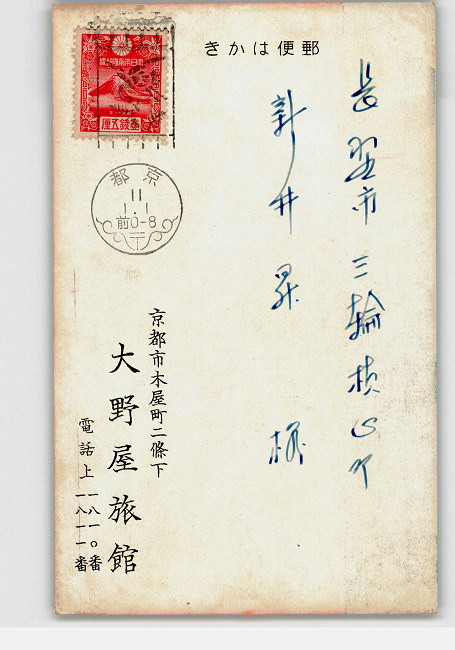 郵便はかき
長野市三輪
新井昇様
大日本帝國郵便
壹錢五厘
京都
11
1.1
前0-8
京都市木屋町二條下
大野屋旅館
電話上一八一〇番
一八一一番